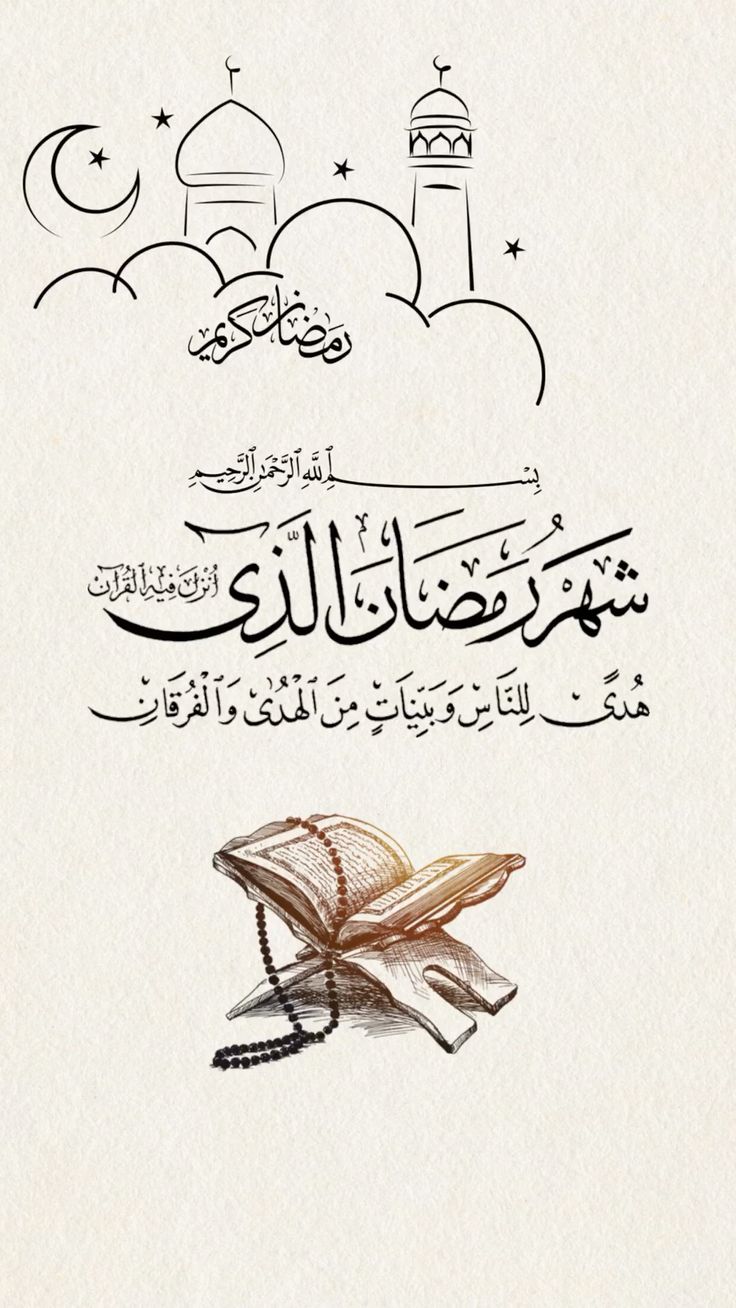 رمضان كريم
بِسْمِ ٱللَّهِ ٱلرَّحْمَٰنِ ٱلرَّحِيمِ
شَهْرُ رَمَضَانَ الَّذِي أُنْزِلَ فِيهِ الْقُرْآنُ
هُدًى لِلنَّاسِ وَبَيِّنَاتٍ مِنَ ٱلْهُدَىٰ وَٱلْفُرْقَانِ